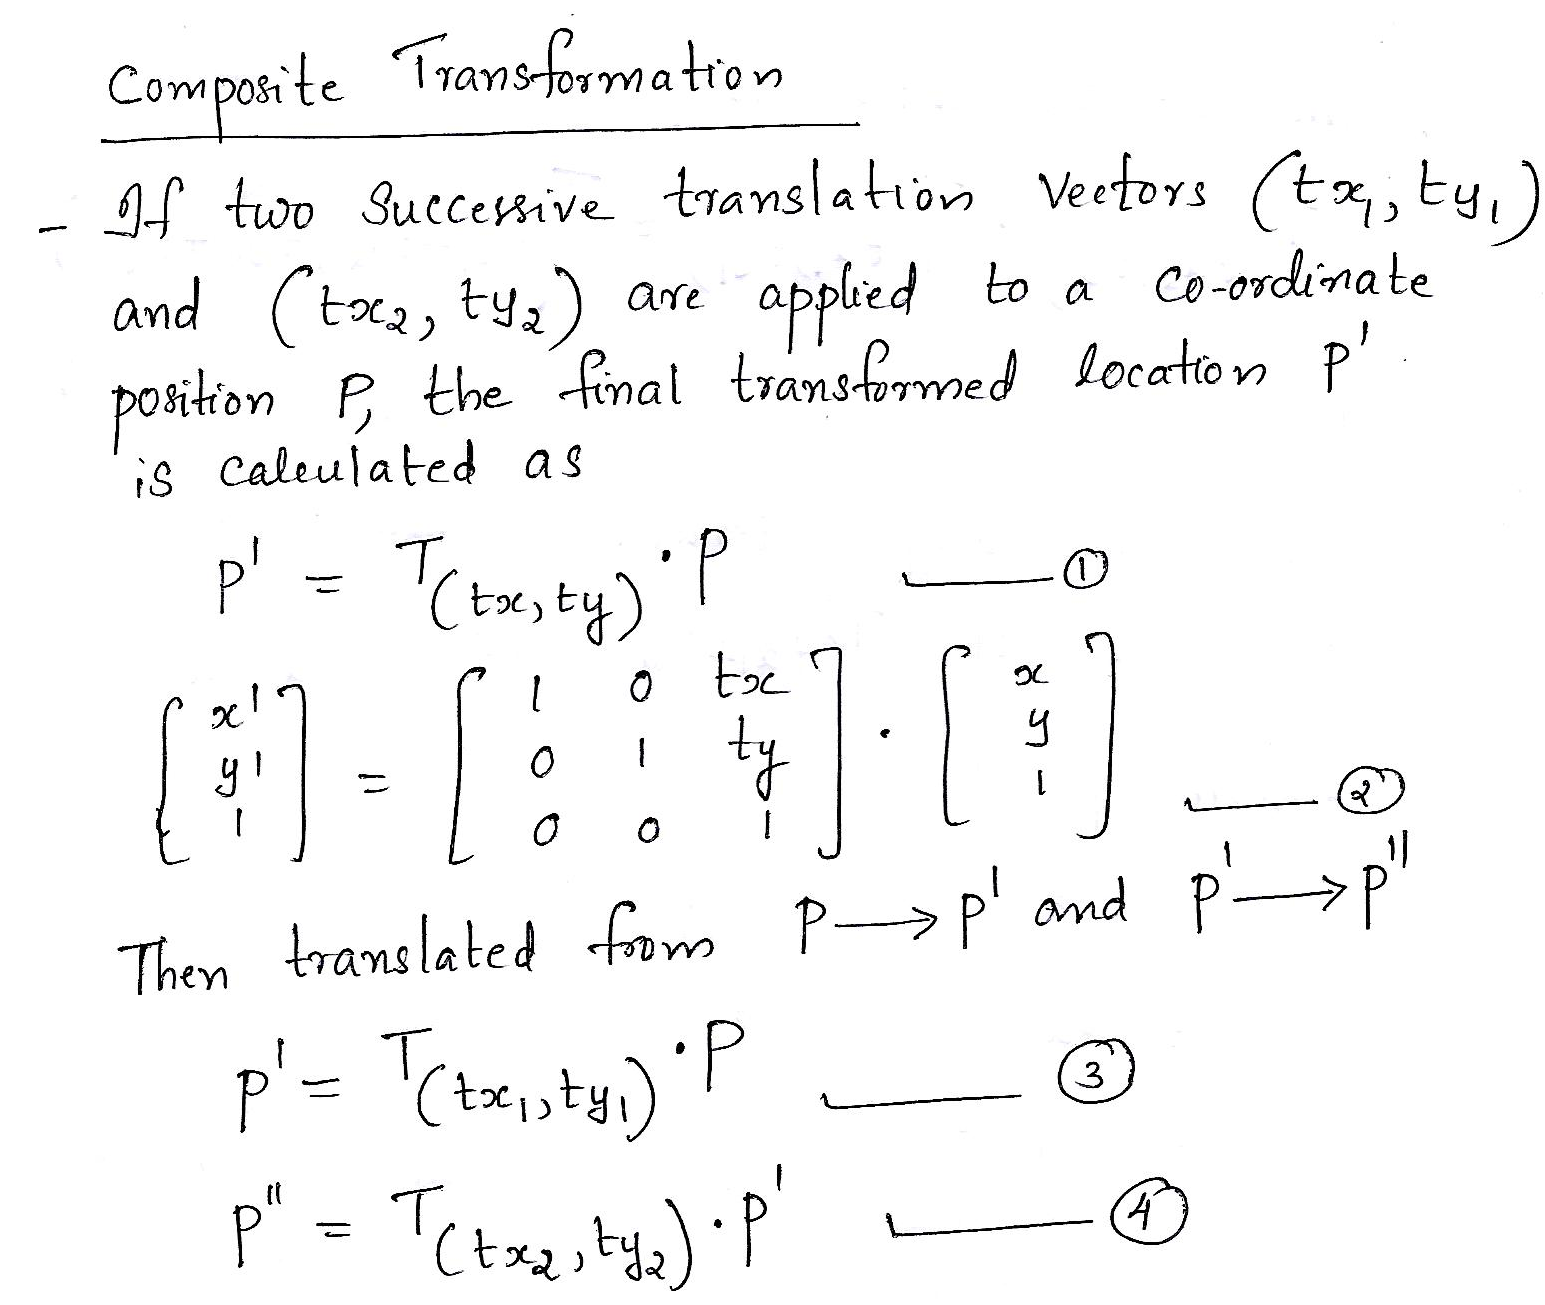 Composite Transformation
- If two Successive translation Vectors (tx₁, ty₁)
and (tx₂, ty₂) are applied to a co-ordinate
position P, the final transformed location P'
is calculated as
P' = T(tx, ty) · P ——— ①
[x' y' 1] = [1 0 tx 0 1 ty 0 0 1] · [x y 1] ——— ②
Then translated from P → P' and P' → P"
P' = T(tx₁, ty₁) · P ——— ③
P" = T(tx₂, ty₂) · P' ——— ④